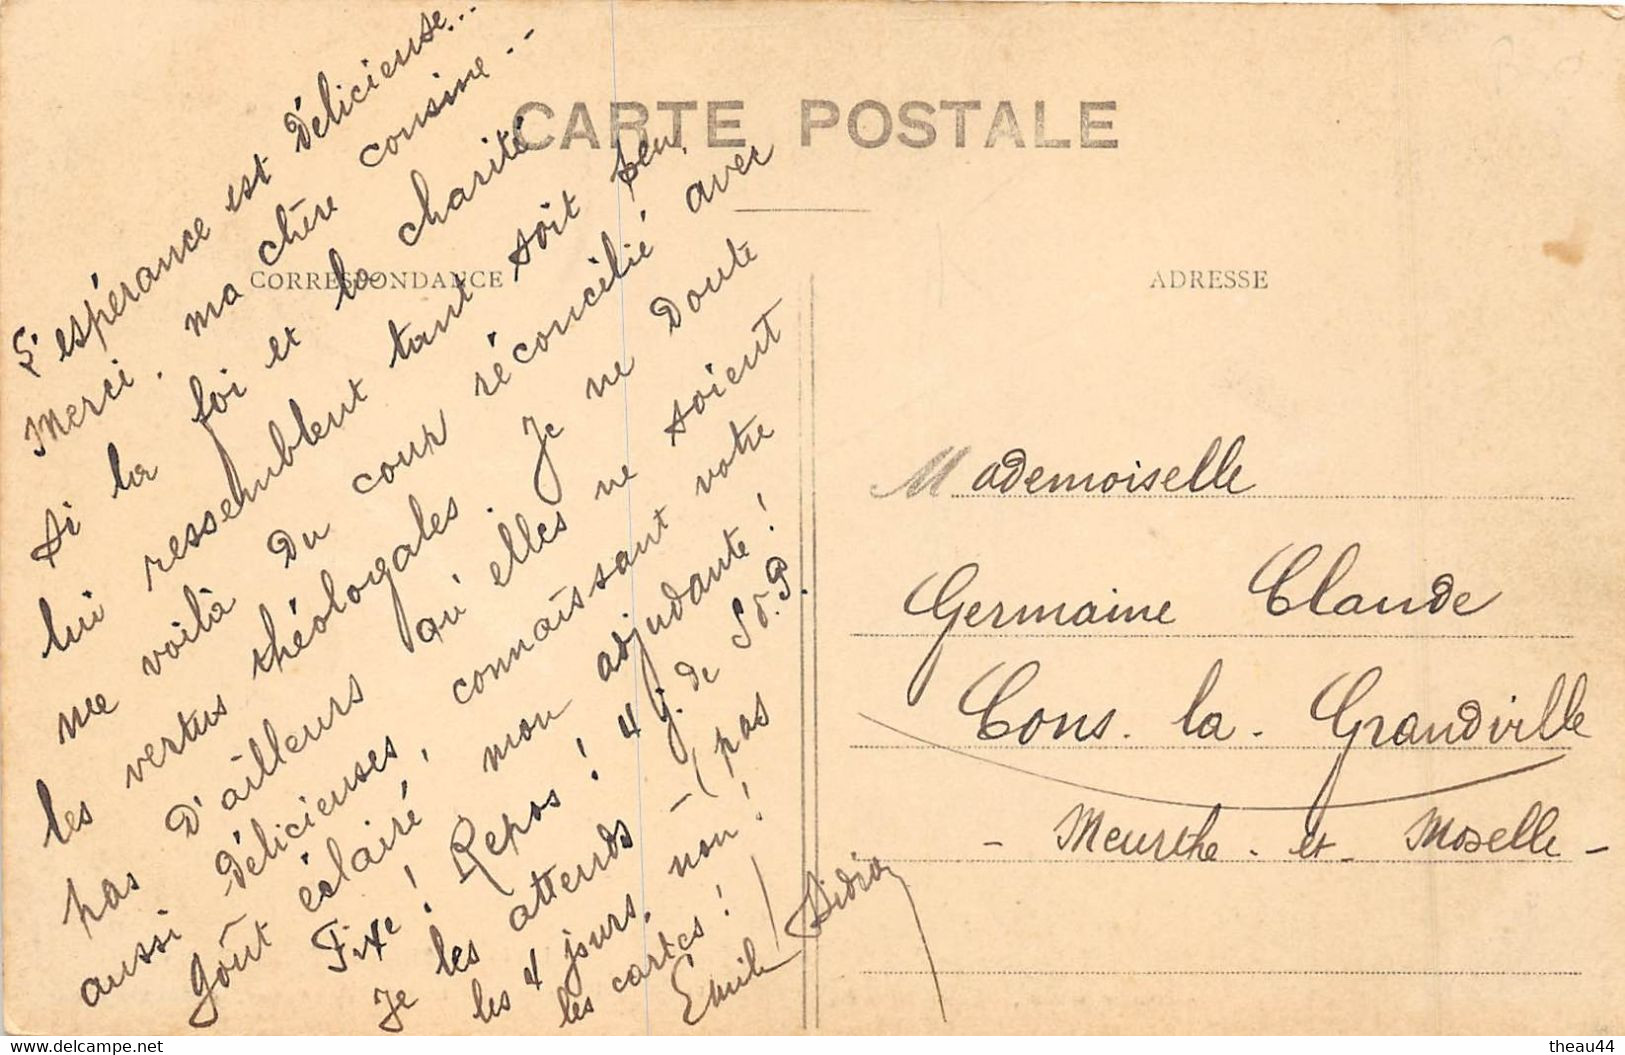 CARTE POSTALE
CORRESPONDANCE
ADRESSE
L'espérance est délicieuse...
Merci, ma chère cousine...
Si la foi et la charité
lui ressemblent tant soit peu,
me voilà du coup réconcilié avec
les vertus théologales. Je ne doute
pas d'ailleurs qu'elles ne soient
aussi délicieuses, connaissant votre
goût éclairé, mon adjudante !
Fixe ! Repos ! 4 j. de S.d.P.
Je les attends - (pas
les 4 jours, non !
les cartes ! )
Emile Didion
Mademoiselle
Germaine Claude
Cons-la-Grandville
- Meurthe-et-Moselle -
www.delcampe.net
theau44